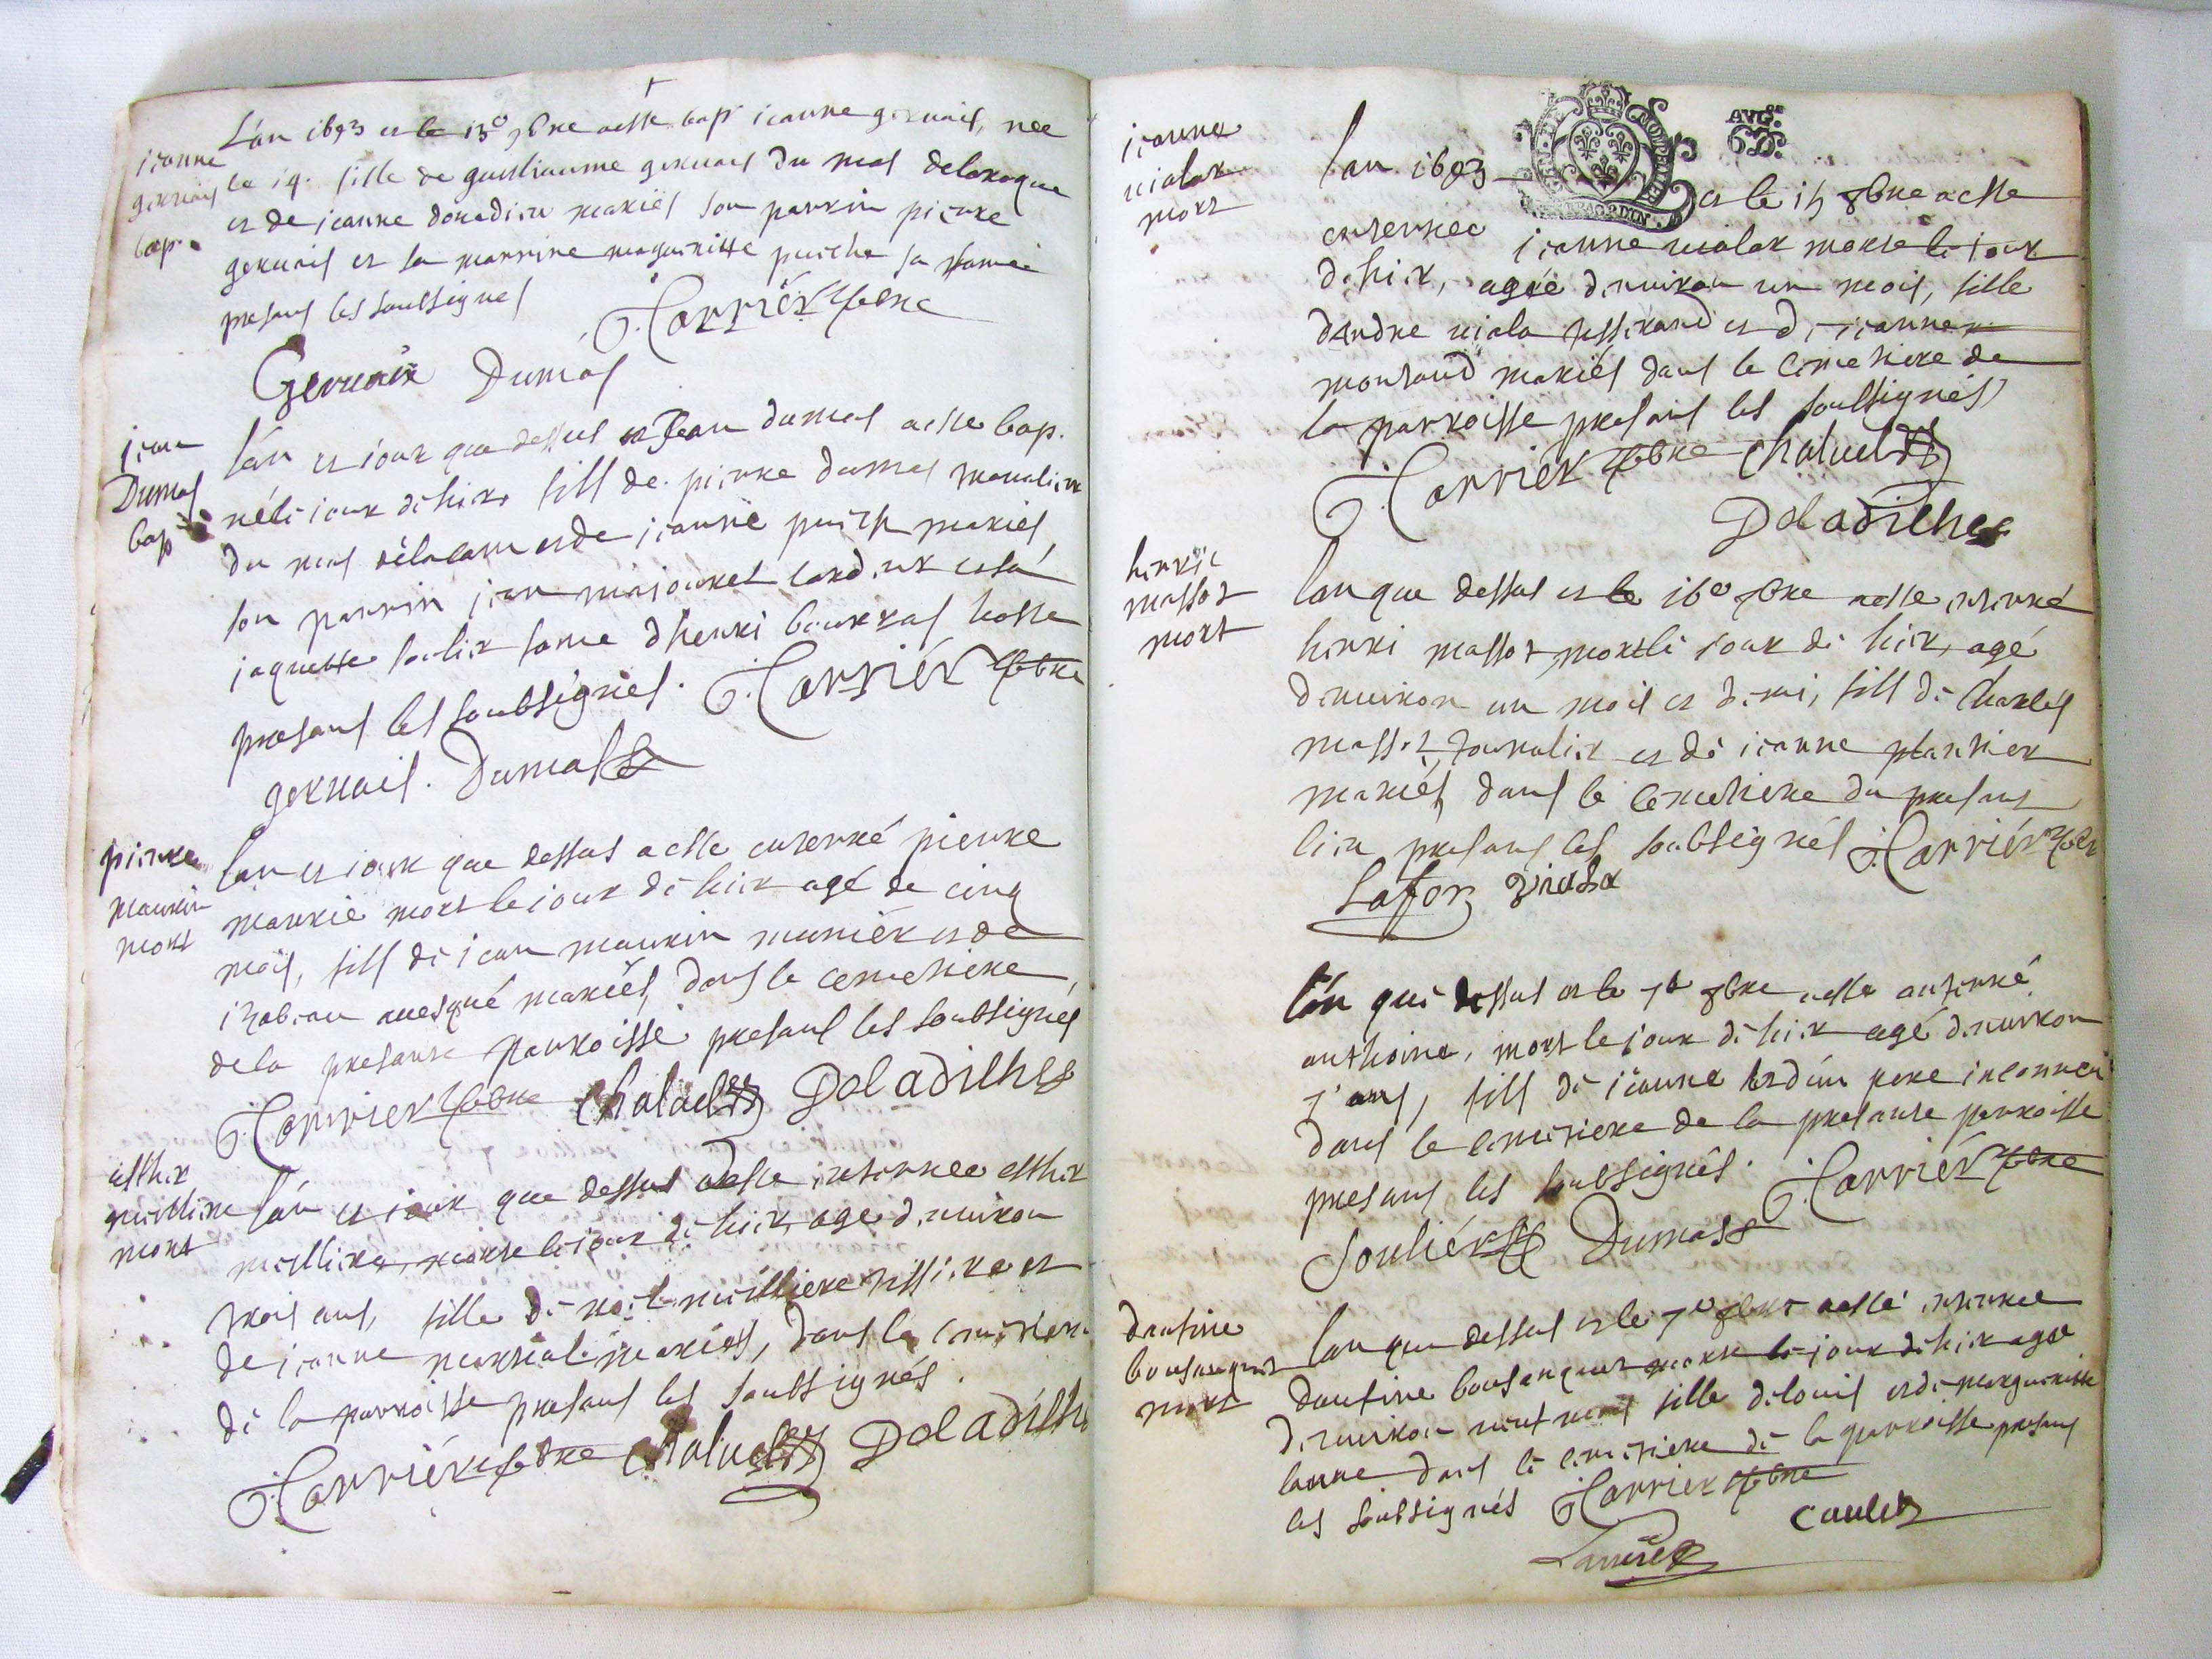 L'an 1693 et le 15e 7bre a este bap jeanne gervais, nee
jeanne
gervais
bap.
le 14. fille de guilliaume gervais du mas delaroque
et de jeanne donadieu mariés son parrin pierre
gervais et sa marrine margueritte puech sa fame
presans les soubsignes
Carrier pbre
Gervaix Dumas
jean
Dumas
bap
l'an et jour que dessus et Jean dumas a este bap.
né le jour de hier fils de pierre dumas
du mas et de jeanne puech mariés
son parrin jean majourel cardeur et sa
jaquette soulier fame d'henri bourras hoste
presans les soubsignés. Carriér pbre
gervais. Dumas
pierre
maurin
mort
l'an et jour que dessus a este enterré pierre
maurin mort le jour de hier agé de cinq
mois, fils de jean maurin muniér et de
izabeau mariés, dans le cemetiere
de la presante parroisse presans les soubsignés
Carrier pbre Chaluel Doladilhe
esther
meilliere
mort
l'an et jour que dessus a este enterree esther
meilliere, morte le jour de hier agee d'environ
trois ans, fille de noel meilliere et
de jeanne martial mariés, dans le cemetiere
de la parroisse presans les soubsignés.
Carriér pbre Chaluel Doladilhe
jeanne
vialar
mort
AVG.
6 D.
GEN. DE MONTPELLIER
l'an 1693 et le 15 7bre a este
enterree jeanne vialar morte le jour
de hier, agée d'environ un mois, fille
d'andre viala tisserand et de jeanne
montaud mariés dans le cimetiere de
la parroisse presans les soubsignés
Carrier pbre Chaluel
Doladilhe
henric
massot
mort
l'an que dessus et le 16e 7bre a este enterré
henri massot mort le jour de hier, agé
d'environ un mois et demi, fils de Charles
massot, et de jeanne plantier
mariés, dans le cemetiere du presant
lieu presans les soubsignés Carriér pbre
Lafon Viala
l'an que dessus et le 7bre a este enterré
anthoine, mort le jour de hier agé d'environ
7 ans, fils de jeanne et d'un pere inconneu
dans le cemetiere de la presante parroisse
presans les soubsignés. Carriér pbre
Souliér Dumas
dausine
bousanquet
mort
l'an que dessus et le a esté enterree
dausine bousanquet morte le jour de hier agee
d'environ fille de louis et de margueritte
dans le cemetiere de la parroisse presans
les soubsignés Carrier pbre
Caulet